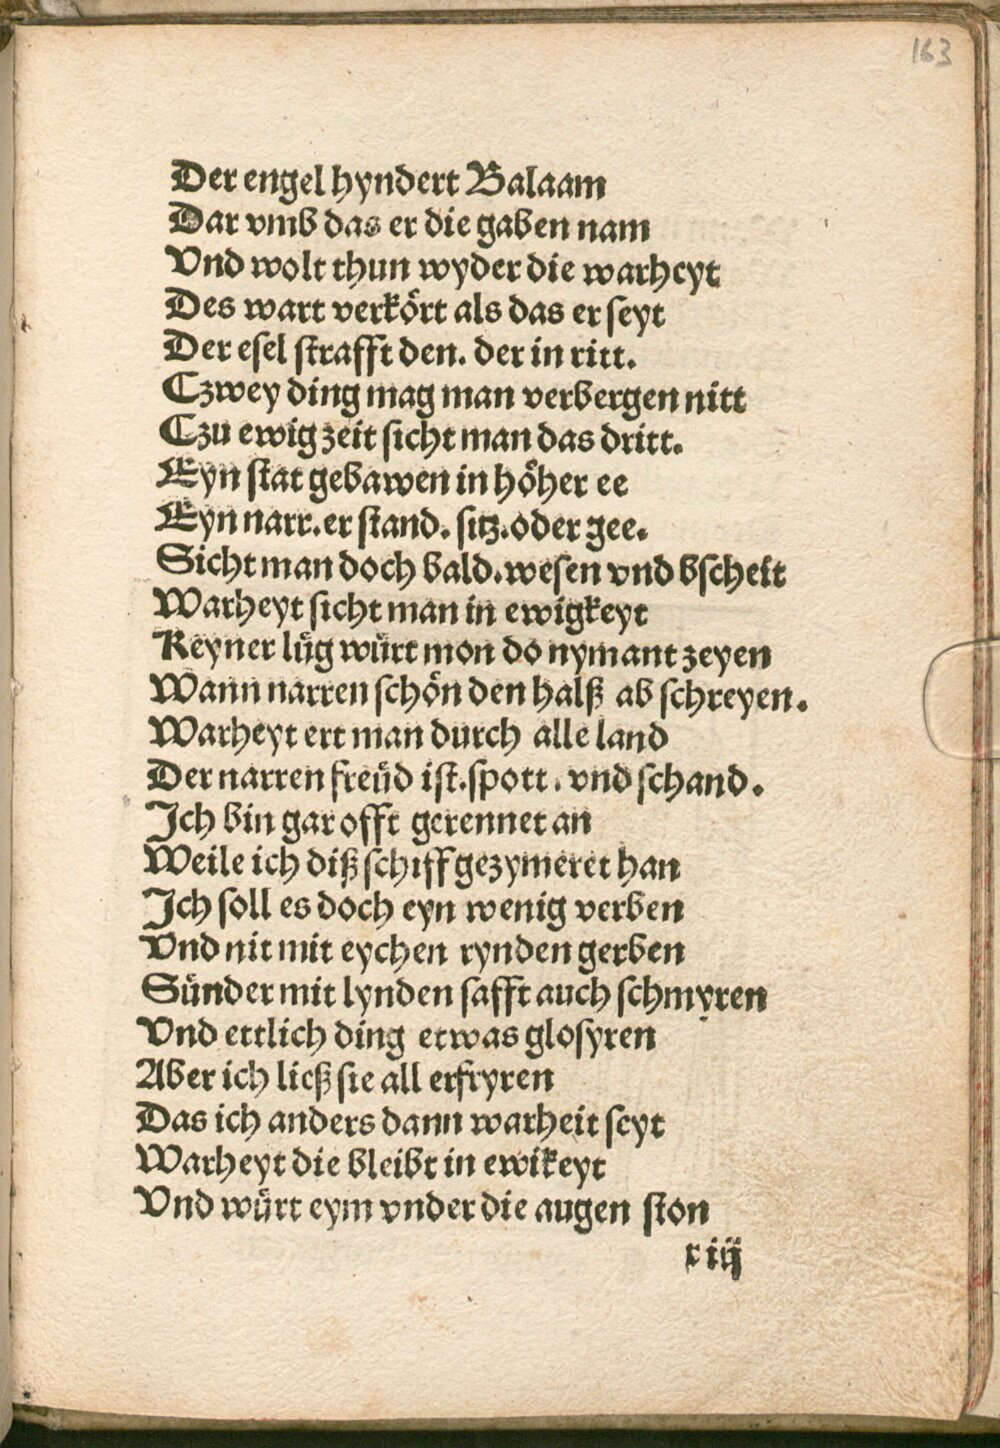 163
Der engel hyndert Balaam
Dar vmb das er die gaben nam
Vnd wolt thun wyder die warheyt
Des wart verkört als das er seyt
Der esel strafft den. der in ritt.
Czwey ding mag man verbergen nitt
Czu ewig zeit sicht man das dritt.
Eyn stat gebawen in höher ee
Eyn narr. er stand. sitz. oder gee.
Sicht man doch bald. wesen vnd bscheit
Warheyt sicht man in ewigkeyt
Keyner lüg würt mon do nymant zeyen
Wann narren schön den halß ab schreyen.
Warheyt ert man durch alle land
Der narren freüd ist. spott. vnd schand.
Ich bin gar offt gerennet an
Weile ich diß schiff gezymeret han
Ich soll es doch eyn wenig verben
Vnd nit mit eychen rynden gerben
Sünder mit lynden safft auch schmyren
Vnd ettlich ding etwas glosyren
Aber ich ließ sie all erfryren
Das ich anders dann warheit seyt
Warheyt die bleibt in ewikeyt
Vnd würt eym vnder die augen ston
x iij